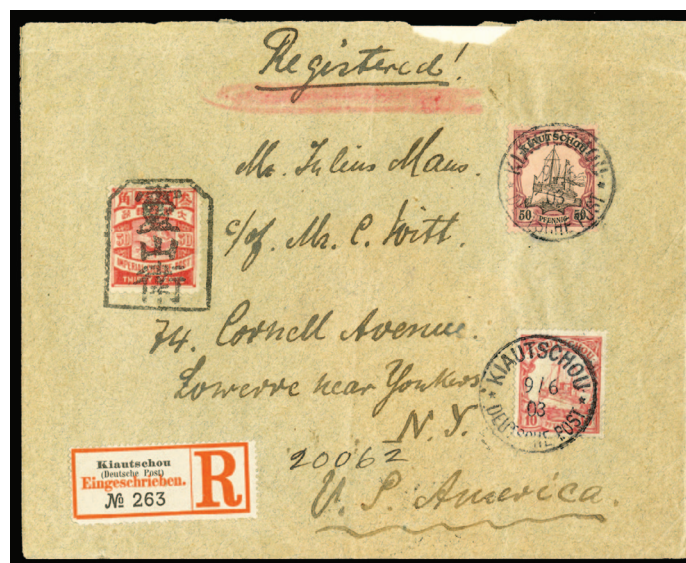 Registered!
Mr. Julius Maus.
c/of. Mr. C. Witt.
74. Cornell Avenue.
Lowerre near Yonkers
N. Y.
20062
U. S. America.
KIAUTSCHOU
50 PFENNIG 50
KIAUTSCHOU
03
KIAUTSCHOU
9/6
03
DEUTSCHE POST
10
30
IMPERIAL
街
Kiautschou
(Deutsche Post)
Eingeschrieben.
№ 263
R